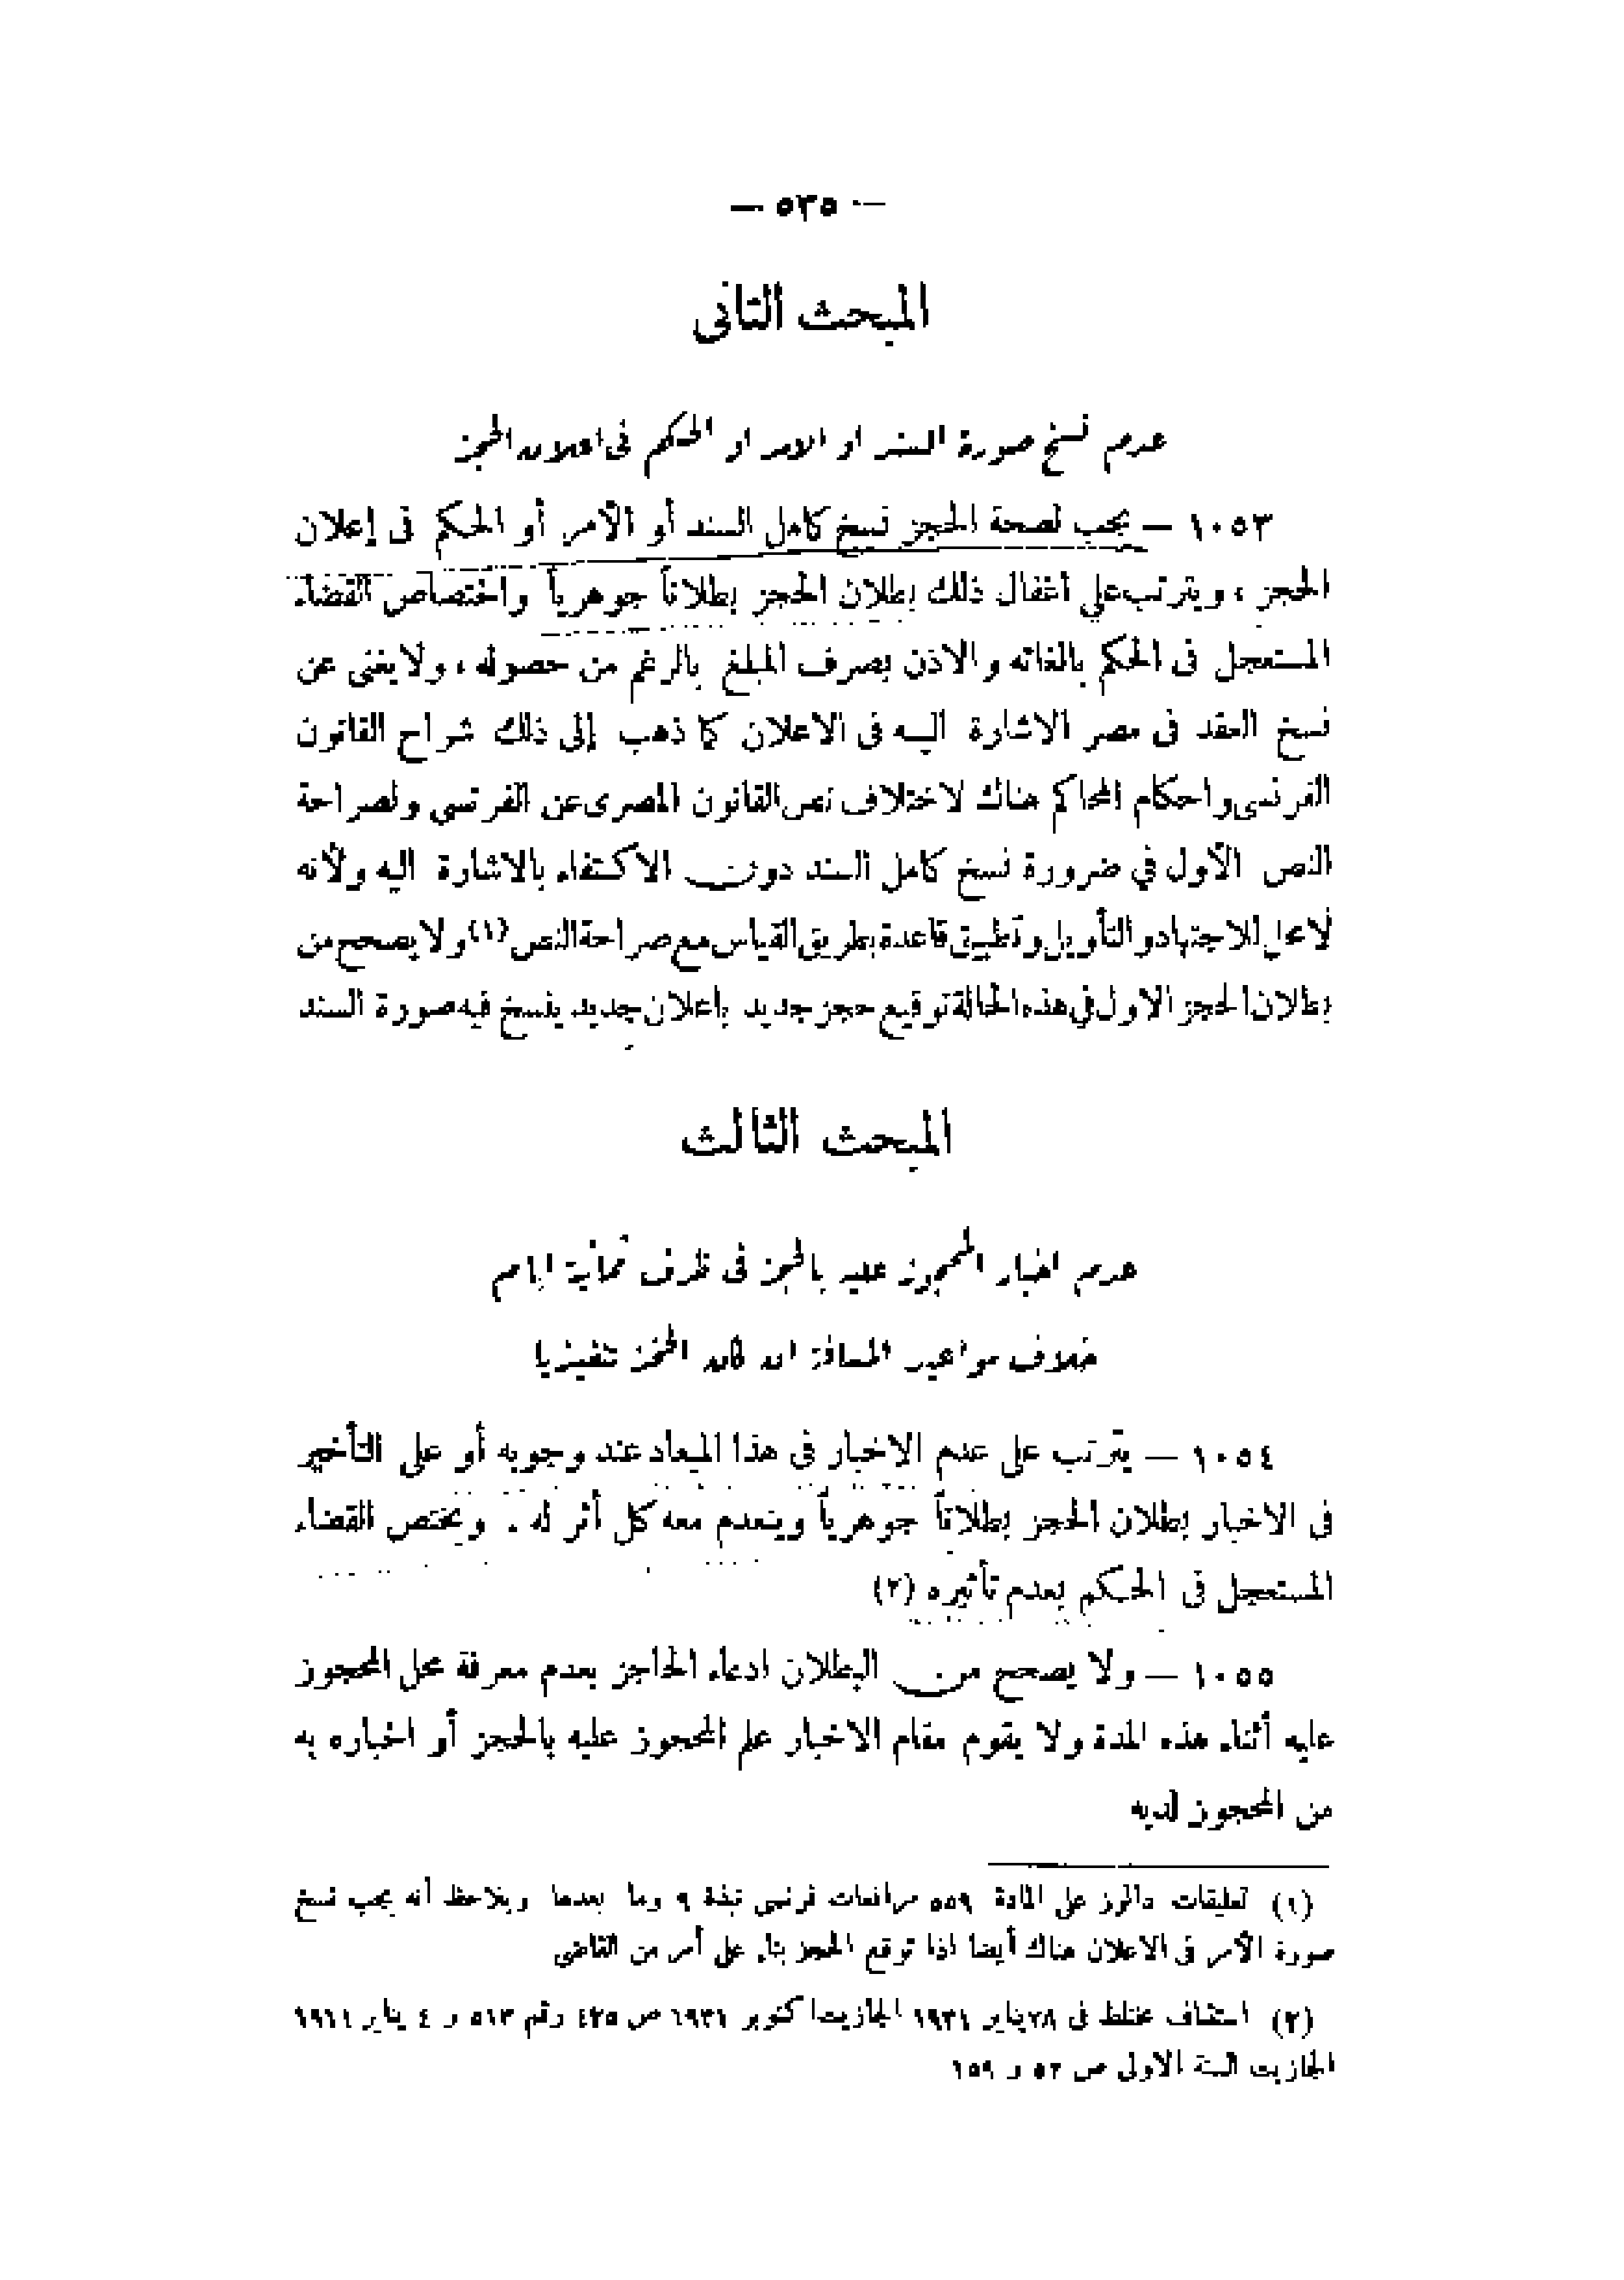 — ٥٣٥ —
المبحث الثانى
عدم نسخ صورة السند او الامر او الحكم فى اعلان الحجز
١٠٥٣ — يجب لصحة الحجز نسخ كامل السند أو الأمر أو الحكم فى إعلان
الحجز ، ويترتب على اغفال ذلك بطلان الحجز بطلاناً جوهرياً واختصاص القضاء
المستعجل فى الحكم بالغائه والاذن بصرف المبلغ بالرغم من حصوله ، ولا يغنى عن
نسخ العقد فى مصر الاشارة اليه فى الاعلان كما ذهب إلى ذلك شراح القانون
الفرنسى واحكام المحاكم هناك لاختلاف نص القانون المصرى عن الفرنسي ولصراحة
النص الأول في ضرورة نسخ كامل السند دون الاكتفاء بالاشارة اليه ولأنه
لا محل للاجتهاد والتأويل وتطبيق قاعدة بطريق القياس مع صراحة النص (١) ولا يصحح من
بطلان الحجز الاول في هذه الحالة توقيع حجز جديد باعلان جديد ينسخ فيه صورة السند
المبحث الثالث
عدم اخبار المحجوز عليه بالحجز فى ظرف ثمانية ايام
خلاف مواعيد المسافة ان كان الحجز تنفيذيا
١٠٥٤ — يترتب على عدم الاخبار فى هذا الميعاد عند وجوبه أو على التأخير
فى الاخبار بطلان الحجز بطلاناً جوهرياً وينعدم معه كل أثر له . ويختص القضاء
المستعجل فى الحكم بعدم تأثيره (٢)
١٠٥٥ — ولا يصحح من البطلان ادعاء الحاجز بعدم معرفة محل المحجوز
عليه أثناء هذه المدة ولا يقوم مقام الاخبار علم المحجوز عليه بالحجز أو اخباره به
من المحجوز لديه
(١) تعليقات دالوز على المادة ٥٥٩ مرافعات فرنسى نبذة ٩ وما بعدها ويلاحظ أنه يجب نسخ
صورة الأمر فى الاعلان هناك أيضا اذا توقع الحجز بناء على أمر من القاضى
(٢) استئناف مختلط فى ٢٨ يناير ١٩٣١ الجازيت اكتوبر ١٩٣١ ص ٤٣٥ رقم ٥١٣ و ٤ يناير ١٩١١
الجازيت السنة الاولى ص ٥٣ و ١٥٩